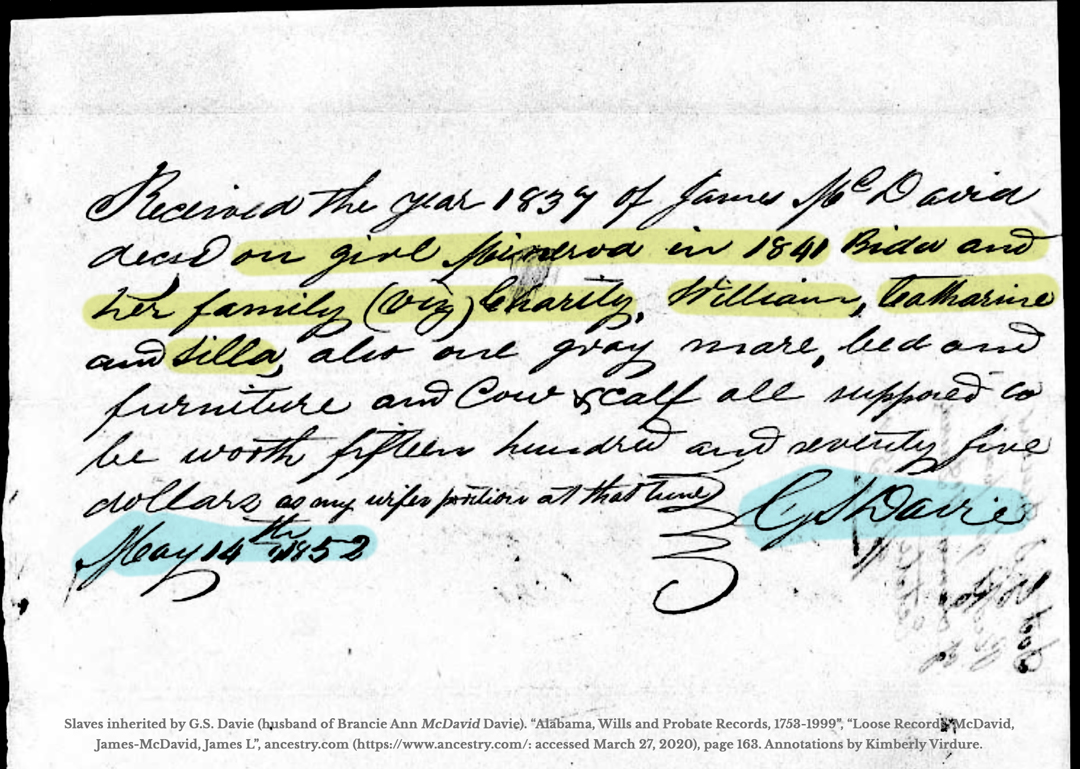 Received the year 1837 of James McDavid
decsd on girl Minerva in 1841 Bida and
her family (viz) Charity, William, Catharine
and Silla, also one gray mare, bed and
furniture and Cow & calf all supposed to
be worth fifteen hundred and seventy five
dollars as my wifes portion at that time
G S Davie
May 14th 1852
Slaves inherited by G.S. Davie (husband of Brancie Ann McDavid Davie). “Alabama, Wills and Probate Records, 1753-1999”, “Loose Records, McDavid,
James-McDavid, James L”, ancestry.com (https://www.ancestry.com/: accessed March 27, 2020), page 163. Annotations by Kimberly Virdure.